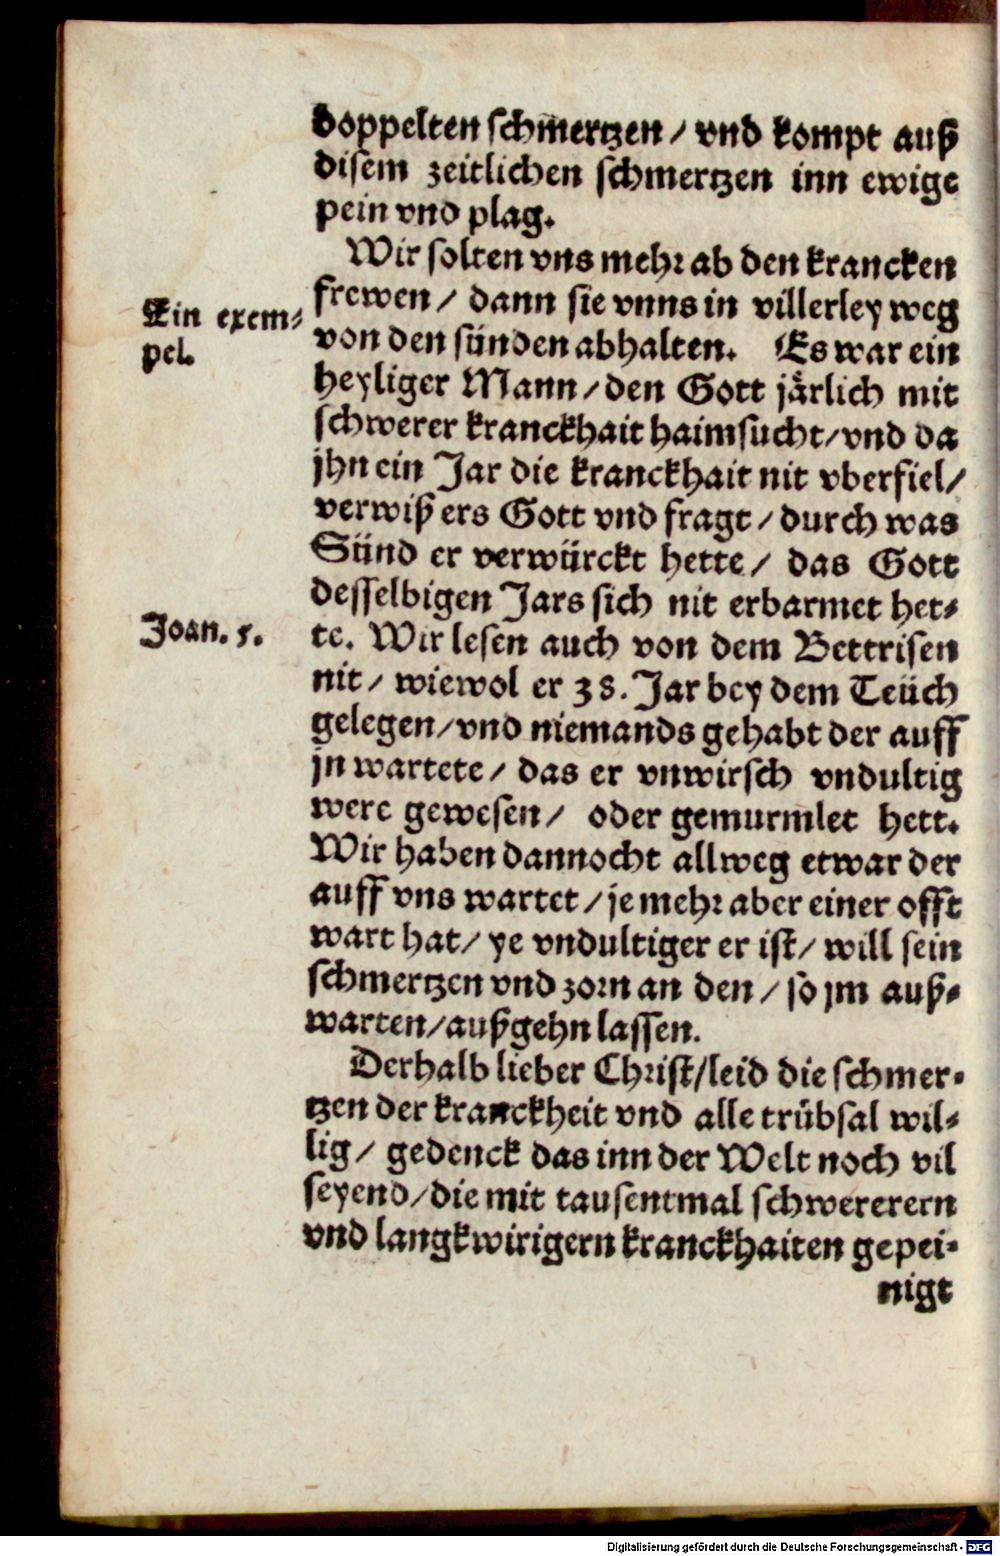 doppelten schmertzen / vnd kompt auß
disem zeitlichen schmertzen inn ewige
pein vnd plag.
Wir solten vns mehr ab den krancken
frewen / dann sie vnns in villerley weg
Ein exem-
pel.
von den sünden abhalten. Es war ein
heyliger Mann / den Gott järlich mit
schwerer kranckhait haimsucht / vnd da
jhn ein Jar die kranckhait nit vberfiel /
verwiß ers Gott vnd fragt / durch was
Sünd er verwürckt hette / das Gott
desselbigen Jars sich nit erbarmet het-
Joan. 5.
te. Wir lesen auch von dem Bettrisen
nit / wiewol er 38. Jar bey dem Teüch
gelegen / vnd niemands gehabt der auff
jn wartete / das er vnwirsch vndultig
were gewesen / oder gemurmlet hett.
Wir haben dannocht allweg etwar der
auff vns wartet / je mehr aber einer offt
wart hat / ye vndultiger er ist / will sein
schmertzen vnd zorn an den / so jm auß-
warten / außgehn lassen.
Derhalb lieber Christ / leid die schmer-
tzen der kranckheit vnd alle trübsal wil-
lig / gedenck das inn der Welt noch vil
seyend / die mit tausentmal schwererern
vnd langkwirigern kranckhaiten gepei-
nigt
Digitalisierung gefördert durch die Deutsche Forschungsgemeinschaft - DFG